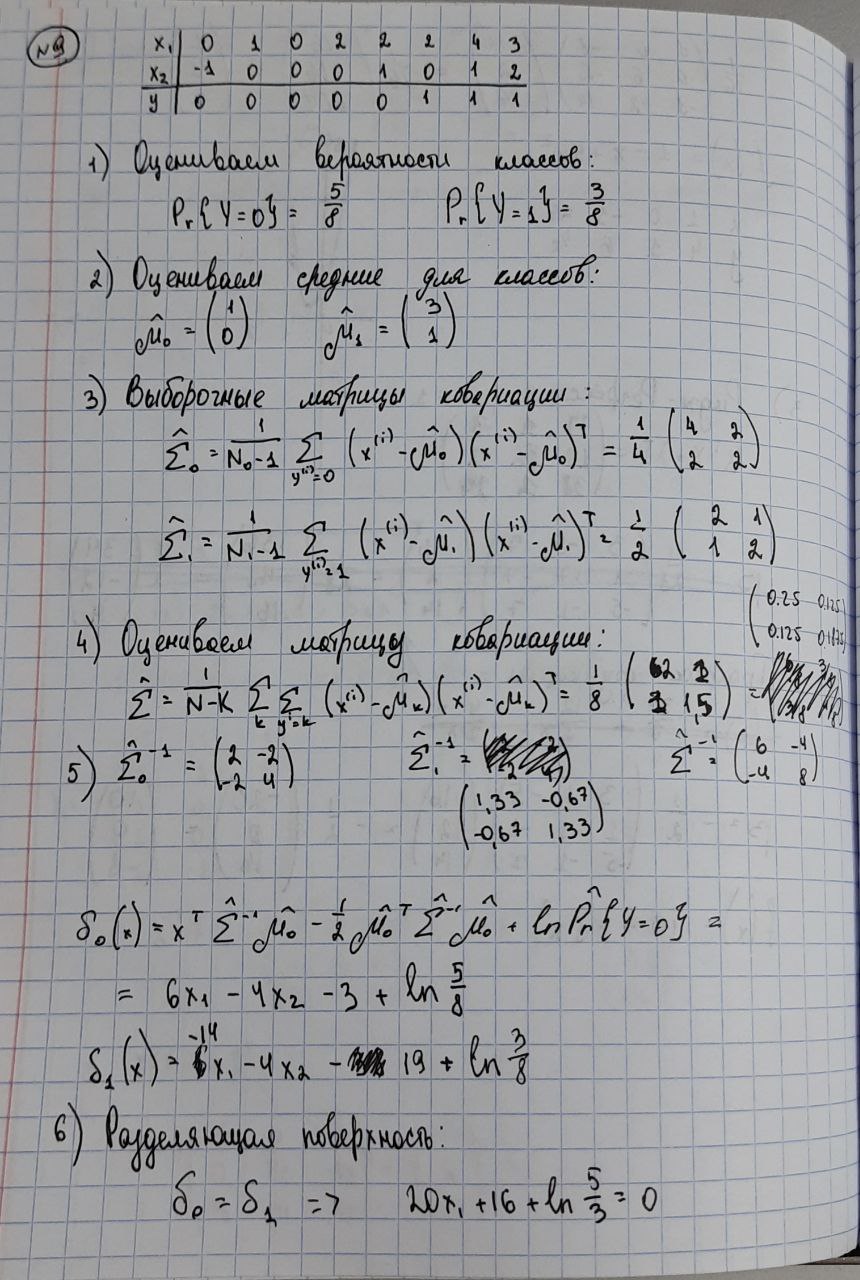 №9
x₁ | 0 1 0 2 2 2 4 3
x₂ | -1 0 0 0 1 0 1 2
y | 0 0 0 0 0 1 1 1
1) Оцениваем вероятности классов:
Pr{Y=0} = 5/8 Pr{Y=1} = 3/8
2) Оцениваем средние для классов:
μ̂₀ = (1 0) μ̂₁ = (3 1)
3) Выборочные матрицы ковариации:
Σ̂₀ = 1/(N₀-1) Σ_{y⁽ⁱ⁾=0} (x⁽ⁱ⁾ - μ̂₀)(x⁽ⁱ⁾ - μ̂₀)ᵀ = 1/4 (4 2 2 2)
Σ̂₁ = 1/(N₁-1) Σ_{y⁽ⁱ⁾=1} (x⁽ⁱ⁾ - μ̂₁)(x⁽ⁱ⁾ - μ̂₁)ᵀ = 1/2 (2 1 1 2)
(0.25 0.125 0.125 0.1875)
4) Оцениваем матрицу ковариации:
Σ̂ = 1/(N-K) Σ_k Σ_{yⁱ=k} (x⁽ⁱ⁾ - μ̂_k)(x⁽ⁱ⁾ - μ̂_k)ᵀ = 1/8 (2 1 1 1,5) =
5) Σ̂₀⁻¹ = (2 -2 -2 4) Σ̂₁⁻¹ = Σ̂⁻¹ = (6 -4 -4 8)
(1,33 -0,67 -0,67 1,33)
δ₀(x) = xᵀ Σ̂⁻¹ μ̂₀ - 1/2 μ̂₀ᵀ Σ̂⁻¹ μ̂₀ + ln P̂r{Y=0} =
= 6x₁ - 4x₂ - 3 + ln 5/8
δ₁(x) = -14x₁ - 4x₂ - 19 + ln 3/8
6) Разделяющая поверхность:
δ₀ = δ₁ => 20x₁ + 16 + ln 5/3 = 0